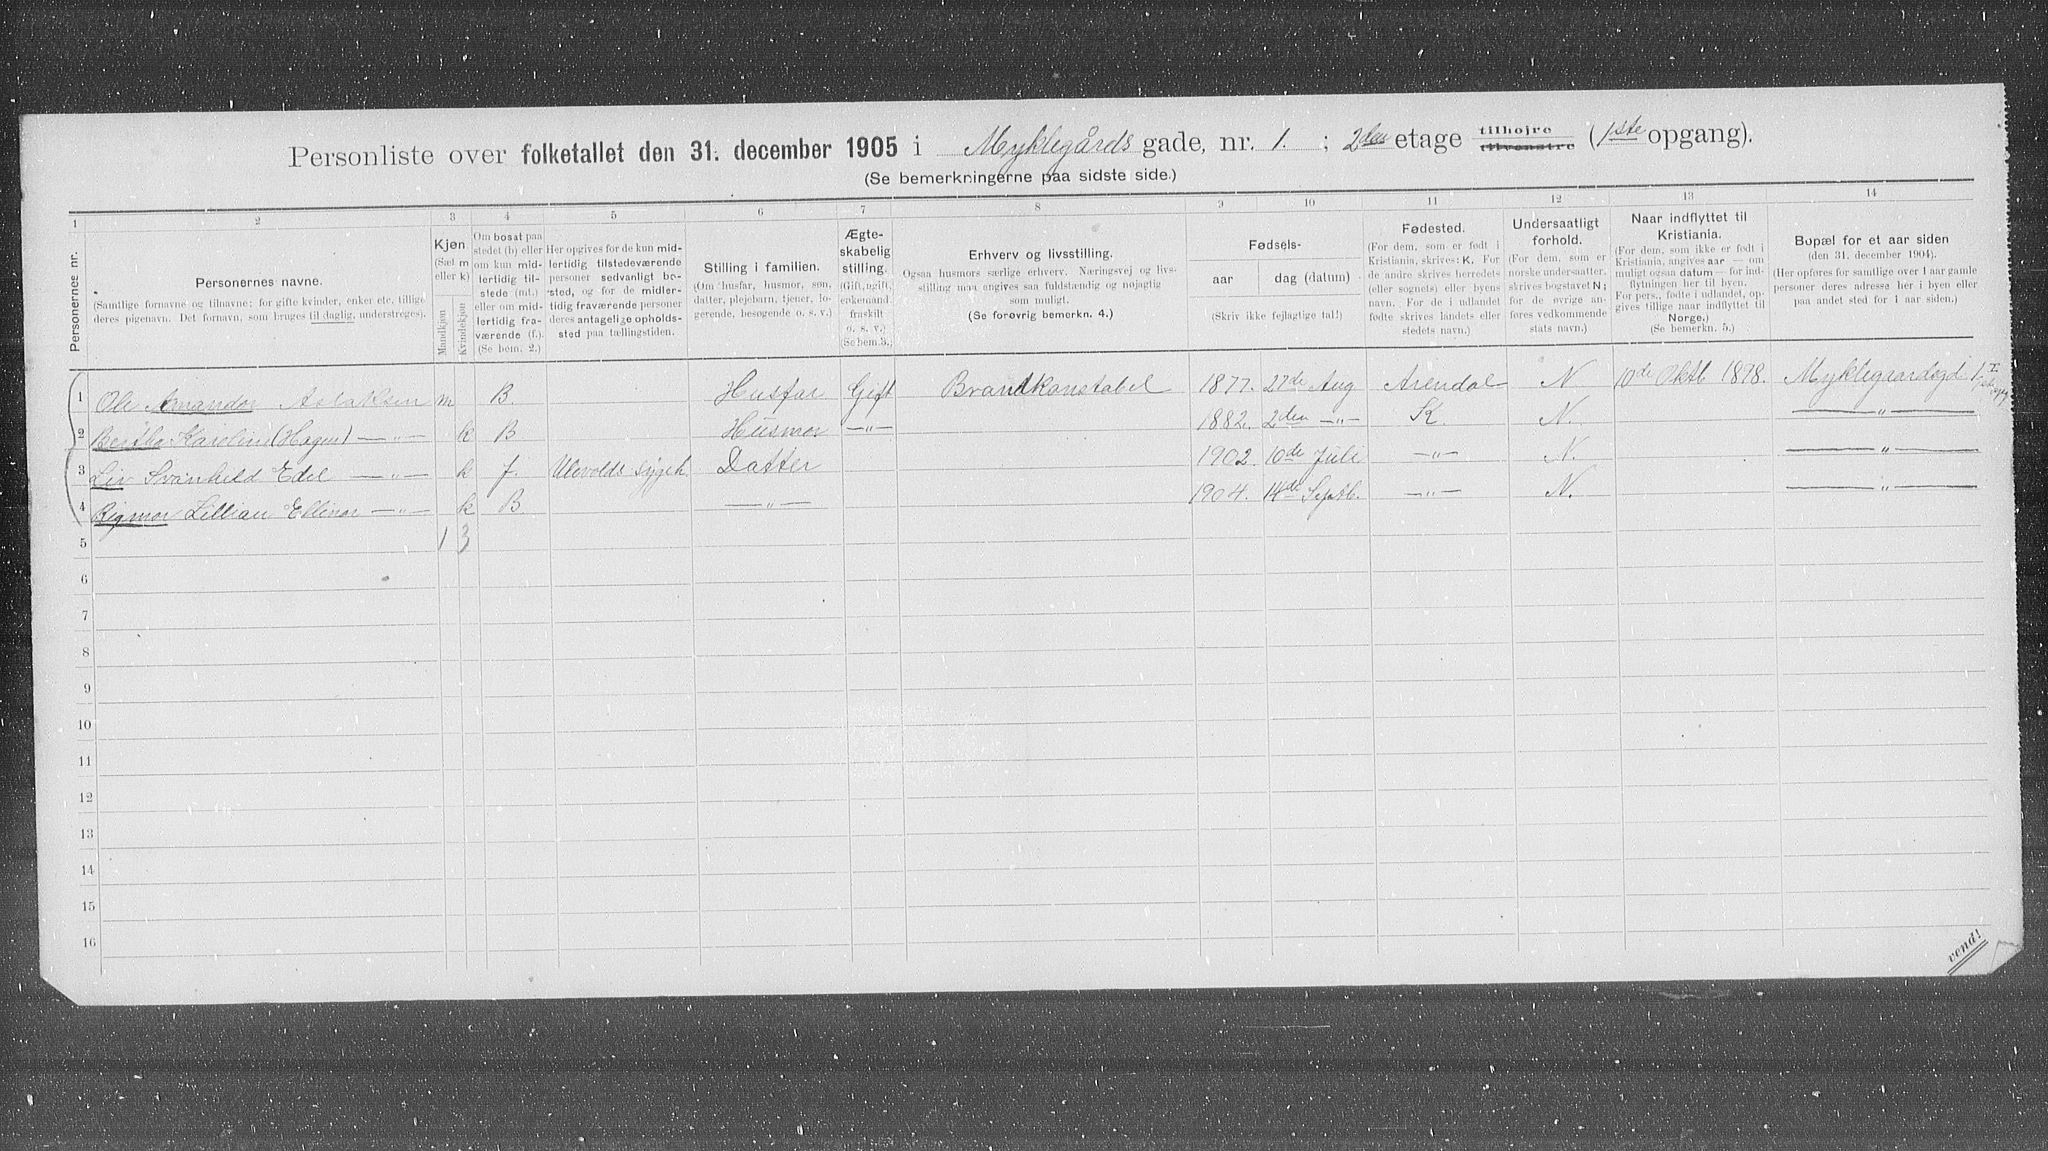 Personliste over folketallet den 31. december 1905 i Myklegårds gade, nr. 1. ; 2den etage tilhøjre tilvenstre (1ste opgang).
(Se bemerkningerne paa sidste side.)
1 2 3 4 5 6 7 8 9 10 11 12 13 14
Personernes nr.
Personernes navne.
(Samtlige fornavne og tilnavne; for gifte kvinder, enker etc. tillige
deres pigenavn. Det fornavn, som bruges til daglig, understreges).
Kjøn
(Sæt m
eller k)
Mandkjøn
Kvindekjøn
Om bosat paa
stedet (b) eller
om kun mid-
lertidig til-
stede (mt.)
eller om mid-
lertidig fra-
værende (f.)
(Se bem. 2.)
Her opgives for de kun mid-
lertidig tilstedeværende
personer sedvanligt bo-
sted, og for de midler-
tidig fraværende personer
deres antagelige opholds-
sted paa tællingstiden.
Stilling i familien.
(Om husfar, husmor, søn,
datter, plejebarn, tjener, lo-
gerende, besøgende o. s. v.)
Ægte-
skabelig
stilling.
(Gift, ugift,
enkemand,
fraskilt
o. s. v.)
(Se bem. 3.)
Erhverv og livsstilling.
Ogsaa husmors særlige erhverv. Næringsvej og livs-
stilling maa angives saa fuldstændig og nøjagtig
som muligt.
(Se forøvrig bemerkn. 4.)
Fødsels-
aar dag (datum)
(Skriv ikke fejlagtige tal!)
Fødested.
(For dem, som er født i
Kristiania, skrives: K. For
de andre skrives herredets
(eller sognets) eller byens
navn. For de i udlandet
fødte skrives landets eller
stedets navn.)
Undersaatligt
forhold.
(For dem, som er
norske undersaatter,
skrives bogstavet N;
for de øvrige an-
føres vedkommende
stats navn.)
Naar indflyttet til
Kristiania.
(For dem, som ikke er født i
Kristiania, angives aar — om
muligt ogsaa datum — for ind-
flytningen her til byen.
For pers., fødte i udlandet, op-
gives tillige naar indflyttet til
Norge.)
(Se bemerkn. 5.)
Bopæl for et aar siden
(den 31. december 1904).
(Her opføres for samtlige over 1 aar gamle
personer deres adresse her i byen eller
paa andet sted for 1 aar siden.)
1 Ole Amandor Aslaksen m B Husfar Gift Brandkonstabel 1877. 27de Aug Arendal N 10de Oktb 1898. Myklegaardsgd 1
2 Bertha Karoline (Hagen) —„— k B Husmor —„— 1882. 2den —„— K. N. —„—
3 Liv Svanhild Edel —„— k f. Ulevolds sygeh. Datter 1902. 10de Juli —„— N. —„—
4 Rigmor Lillian Ellinor —„— k B —„— 1904. 14de Septb. —„— N. —„—
5 1 3
6
7
8
9
10
11
12
13
14
15
16
vend!